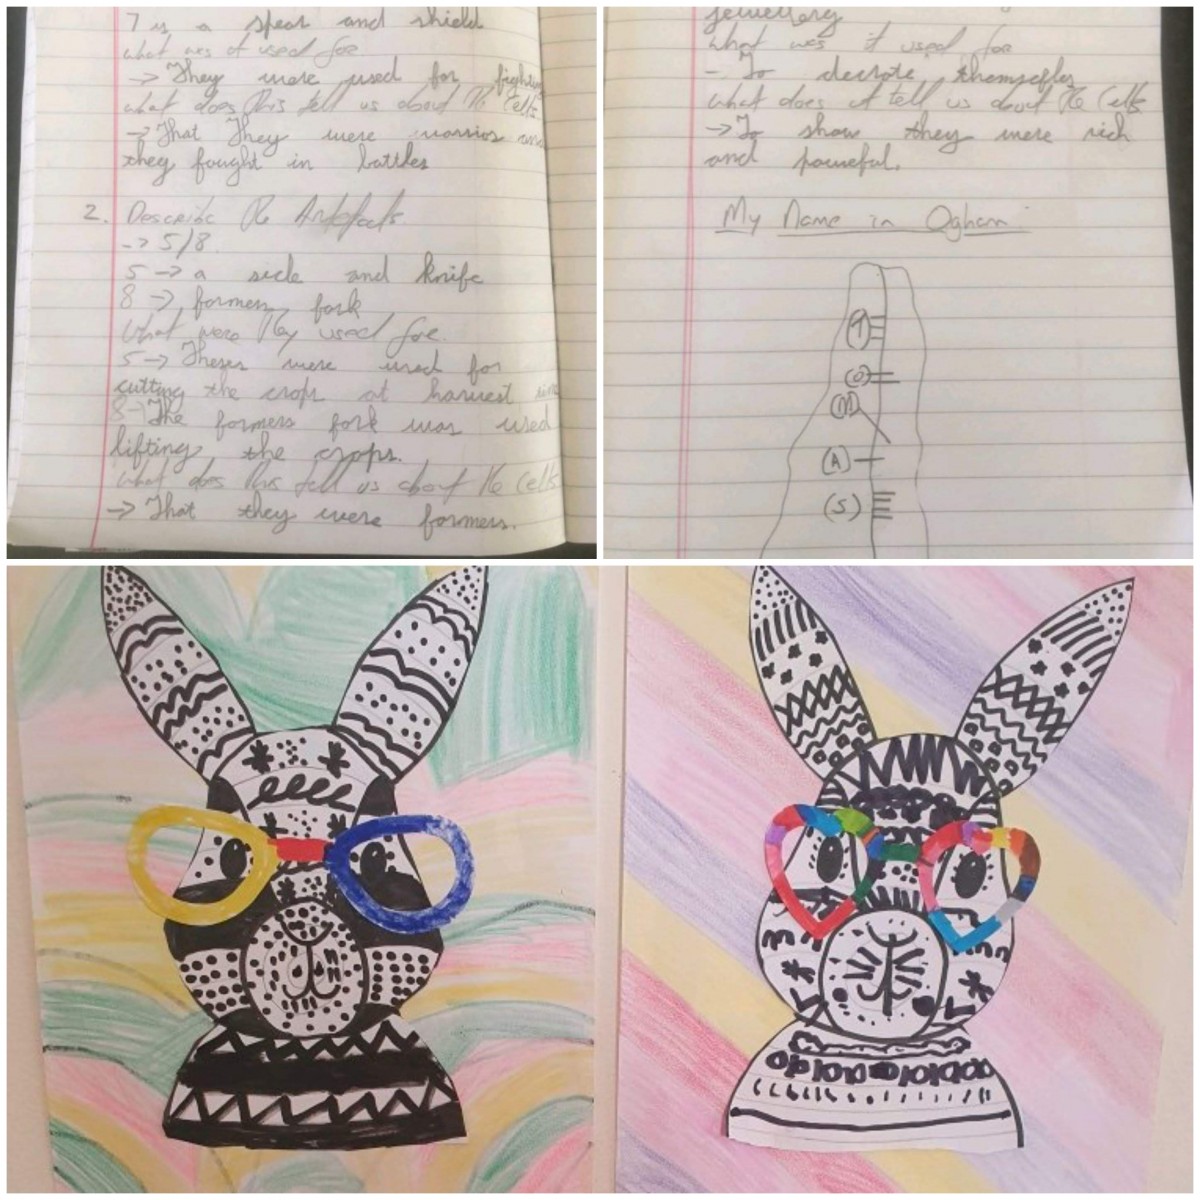 7 is a spear and shield
what was it used for
-> They were used for fighting
what does this tell us about the Celts
-> That They were warrios and
they fought in battles
2. Describe the Artefacts
-> 5/8
5 -> a sicle and knife
8 -> formers fork
What were they used for.
5 -> Theses were used for
cutting the crops at harvest
8 -> The formers fork was used
lifting the crops.
what does this tell us about the Celts
-> That they were formers.
jewellery
what was it used for
- To decrote themselfes
what does it tell us about the Celts
-> To show they were rich
and poweful.
My Name in Ogham
(T)
(O)
(M)
(A)
(S)